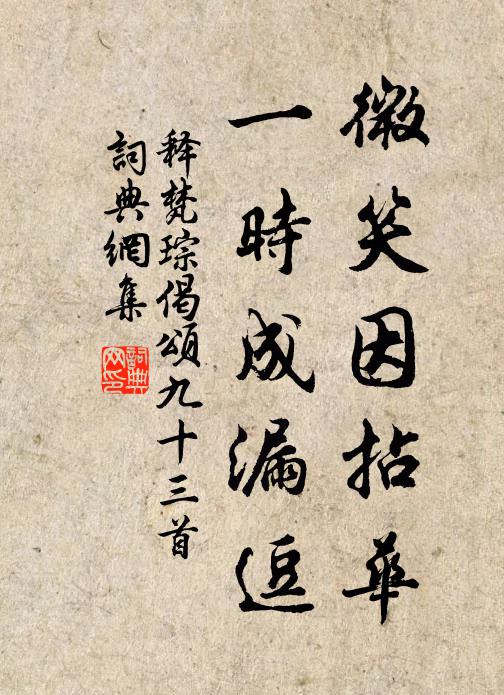 微笑因拈華
一時成漏逗
释梵琮偈頌九十三首
詞典網集
詞典网印